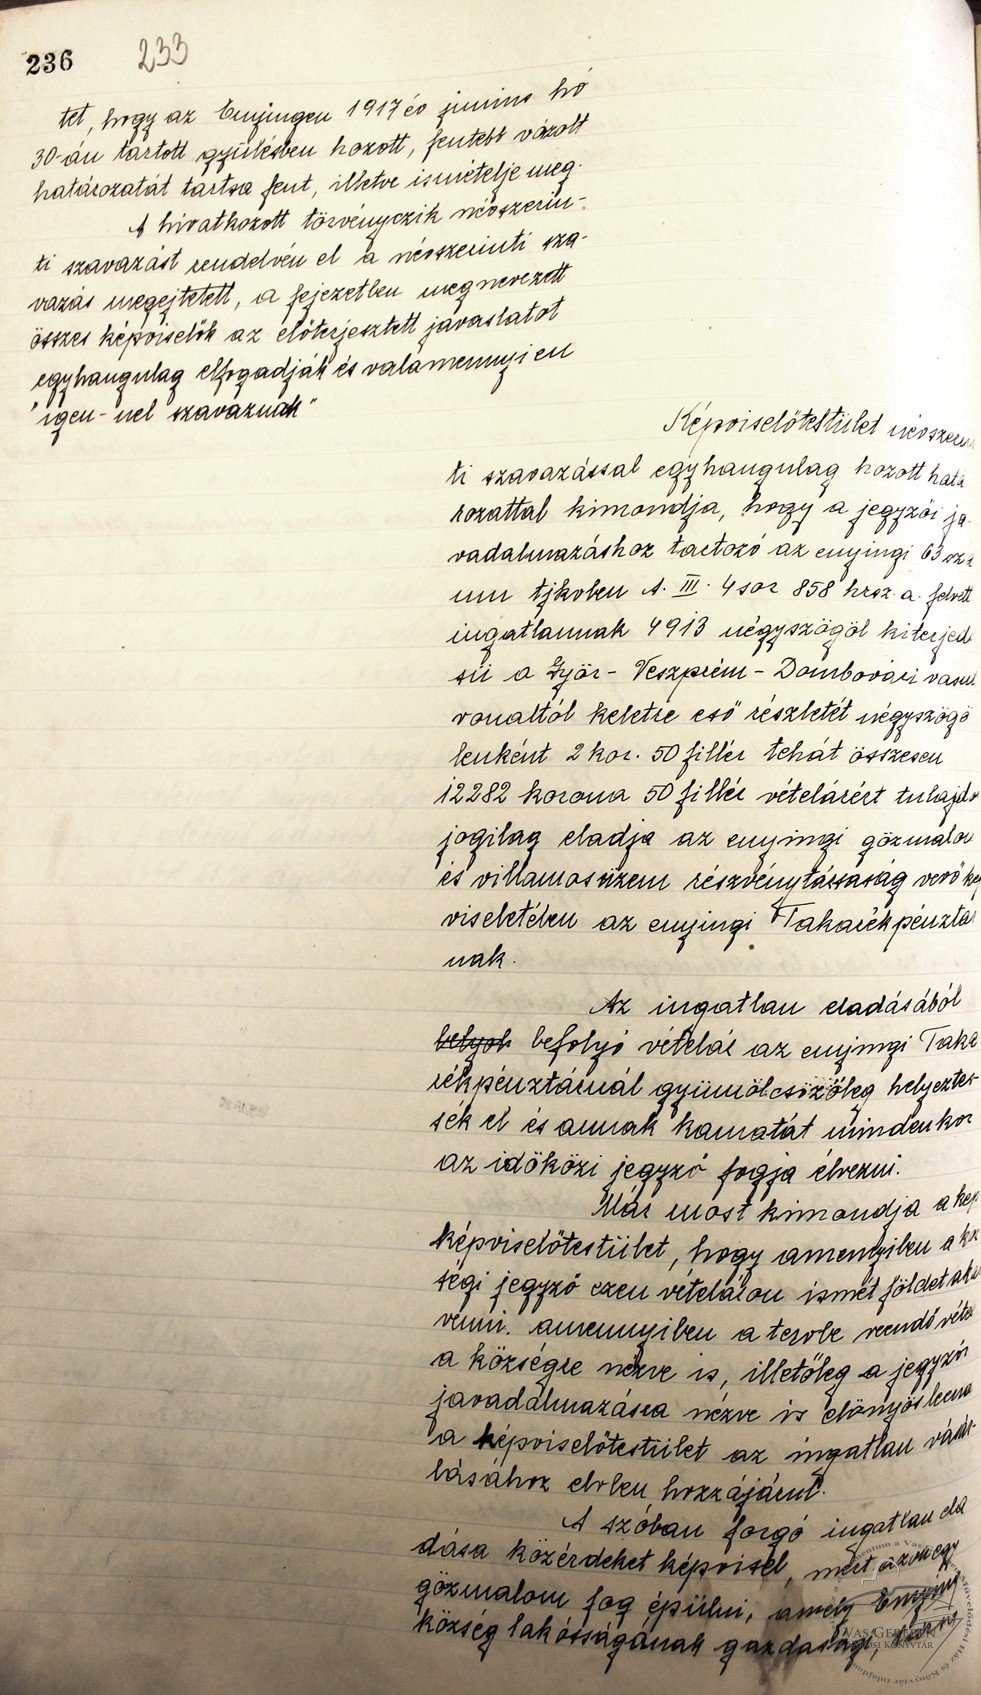 236 233
tet, hogy az Enyingen 1917 év junius hó
30-án tartott gyülésben hozott, fentebb vázolt
határozatát tartsa fent, illetve ismételje meg.
A hivatkozott törvényczik névszerin-
ti szavazást rendelvén el a névszerinti sza-
vazás megejtetett, a fejezetben megnevezett
összes képviselők az előterjesztett javaslatot
egyhangulag elfogadják és valamennyien
"igen-nel szavaznak"
Képviselőtestület névszerin
ti szavazással egyhangulag hozott hatá
rozattal kimondja, hogy a jegyzői ja-
vadalmazáshoz tartozó az enyingi 63 szá
mu tjkvben A. III. 4 sor 858 hrsz. a. felvett
ingatlannak 4913 négyszögöl kiterjed
sü a Győr-Veszprém-Dombovári vasut
vonaltól keletre eső részletét négyszögö
lenként 2 kor. 50 fillér tehát összesen
12282 korona 50 fillér vételárért tulajdon
jogilag eladja az enyingi gőzmalom
és villamosüzem részvénytársaság vevő kép
viseletében az enyingi Takarékpénztár
nak.
Az ingatlan eladásából
befolyó vételár az enyingi Taka
rékpénztárnál gyümölcsözőleg helyeztes-
sék el és annak kamatát mindenkor
az időközi jegyző fogja élvezni.
Már most kimondja a kép
képviselőtestület, hogy amenyiben a köz
ségi jegyző ezen vételáron ismét földet akar
venni. amennyiben a tervbe veendő vétel
a községre nézve is, illetőleg a jegyzői
javadalmazásra nézve is előnyös lenne
a képviselőtestület az ingatlan vásár-
lásához elvben hozzájárul.
A szóban forgó ingatlan ela
dása közérdeket képvisel, mert azon egy
gőzmalom fog épülni, amely Enying
község lakósságának gazdasági,
VAS GEREBEN
VÁROSI KÖNYVTÁR